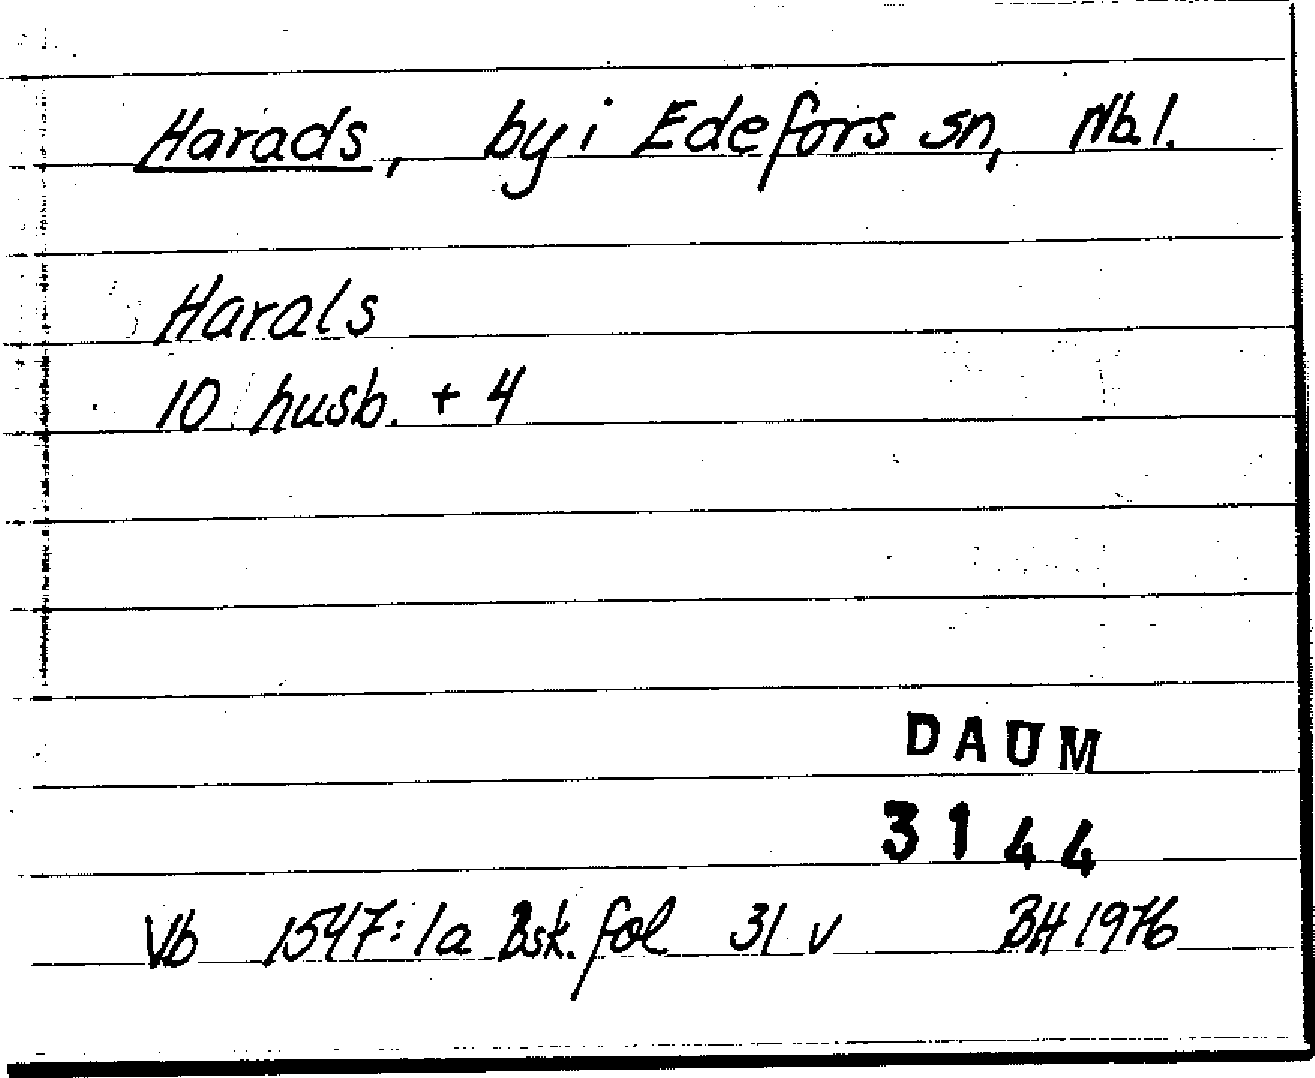 Harads, by i Edefors sn, Nb.l.
Harals
10 husb. + 4
DAUM
3144
Vb 1547:1a Bsk. fol 31 v BH 1976